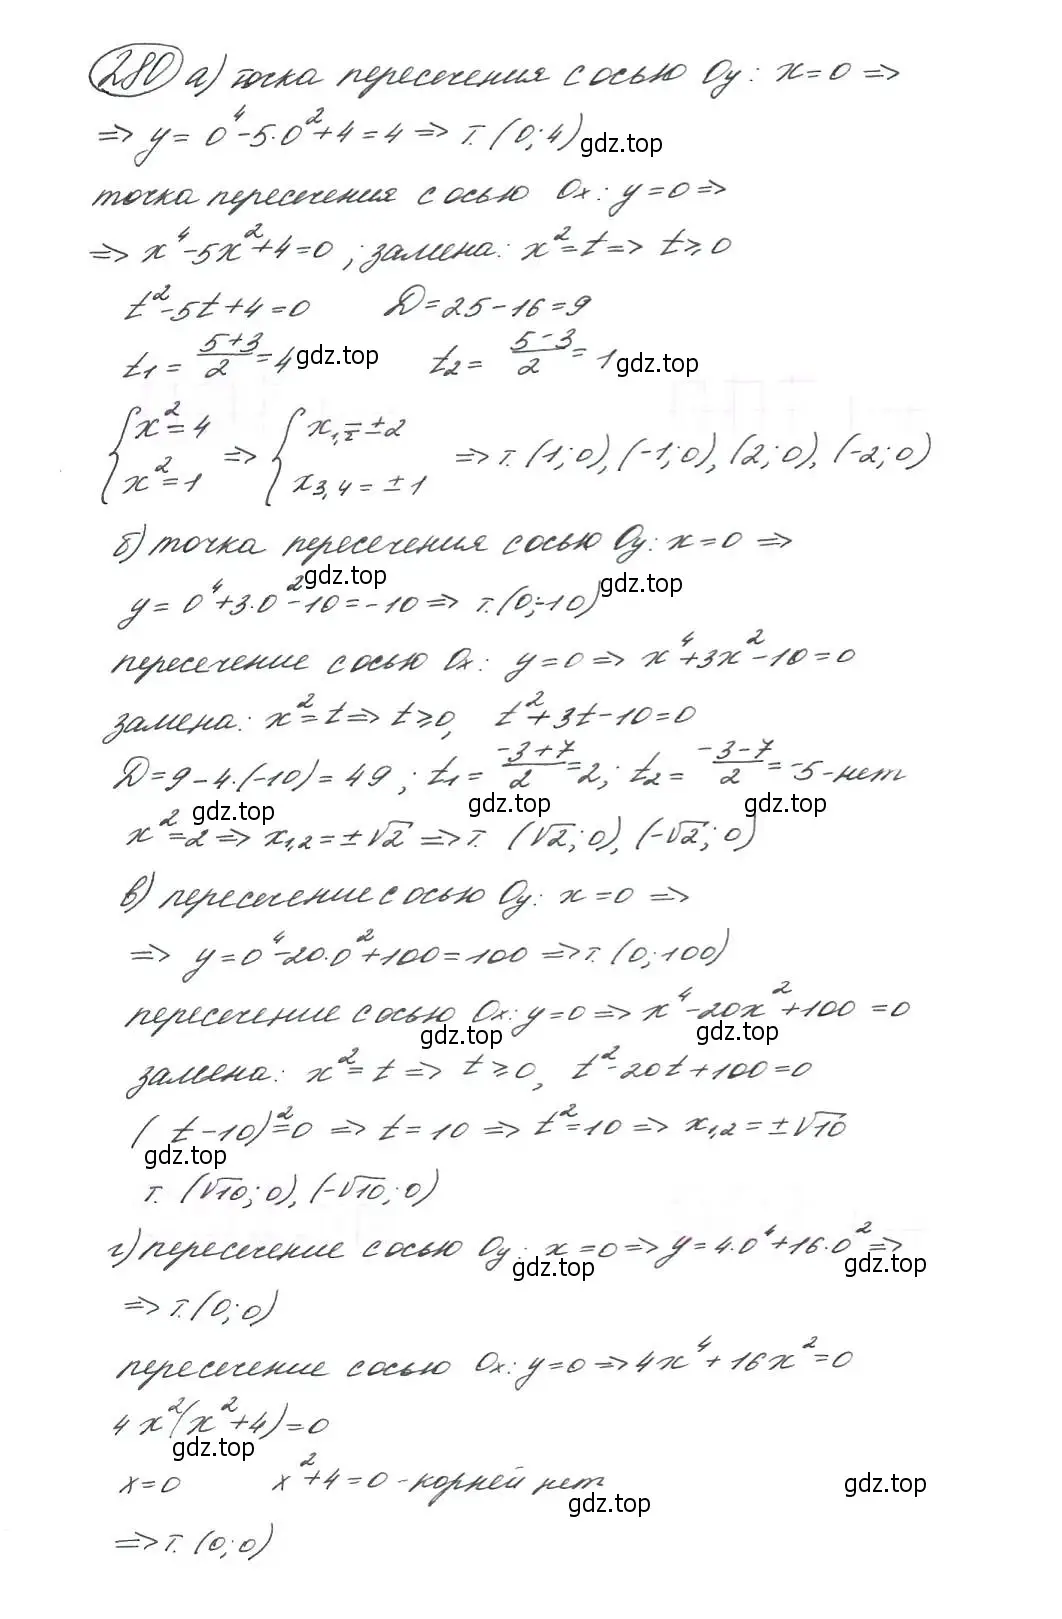 280 а) точка пересечения с осью Oy: x=0 =>
=> y= 0⁴-5·0²+4=4 => т. (0;4) gdz.top
точка пересечения с осью Ox: y=0 =>
=> x⁴-5x²+4=0 ; замена: x²=t => t≥0
t²-5t+4=0 D=25-16=9
t₁ = (5+3)/2 = 4 gdz.top t₂ = (5-3)/2 = 1 gdz.top
{x²=4 => {x₁,₂=±2 => т. (1;0), (-1;0), (2;0), (-2;0)
{x²=1 {x₃,₄=±1
б) точка пересечения с осью Oy: x=0 =>
y= 0⁴+3·0²-10=-10 => т. (0;-10) gdz.top gdz.top
пересечение с осью Ox: y=0 => x⁴+3x²-10=0
замена: x²=t => t≥0, t²+3t-10=0
D=9-4·(-10)=49 ; t₁= (-3+7)/2 =2; t₂= (-3-7)/2 = -5 -нет
gdz.top gdz.top gdz.top
x²=2 => x₁,₂=±√2 => т. (√2;0), (-√2;0)
в) пересечение с осью Oy: x=0 =>
=> y=0⁴-20·0²+100=100 => т. (0;100)
пересечение с осью Ox: y=0 => x⁴-20x²+100 =0
gdz.top gdz.top
замена: x²=t => t≥0, t²-20t+100=0
(t-10)²=0 => t=10 => t²=10 => x₁,₂=±√10
gdz.top
т. (√10;0), (-√10;0)
г) пересечение с осью Oy: x=0 => y=4·0⁴+16·0² =>
gdz.top gdz.top
=> т. (0;0)
пересечение с осью Ox: y=0 => 4x⁴+16x²=0
4x²(x²+4)=0
gdz.top
x=0 x²+4=0 -корней нет gdz.top
gdz.top
=> т. (0;0)